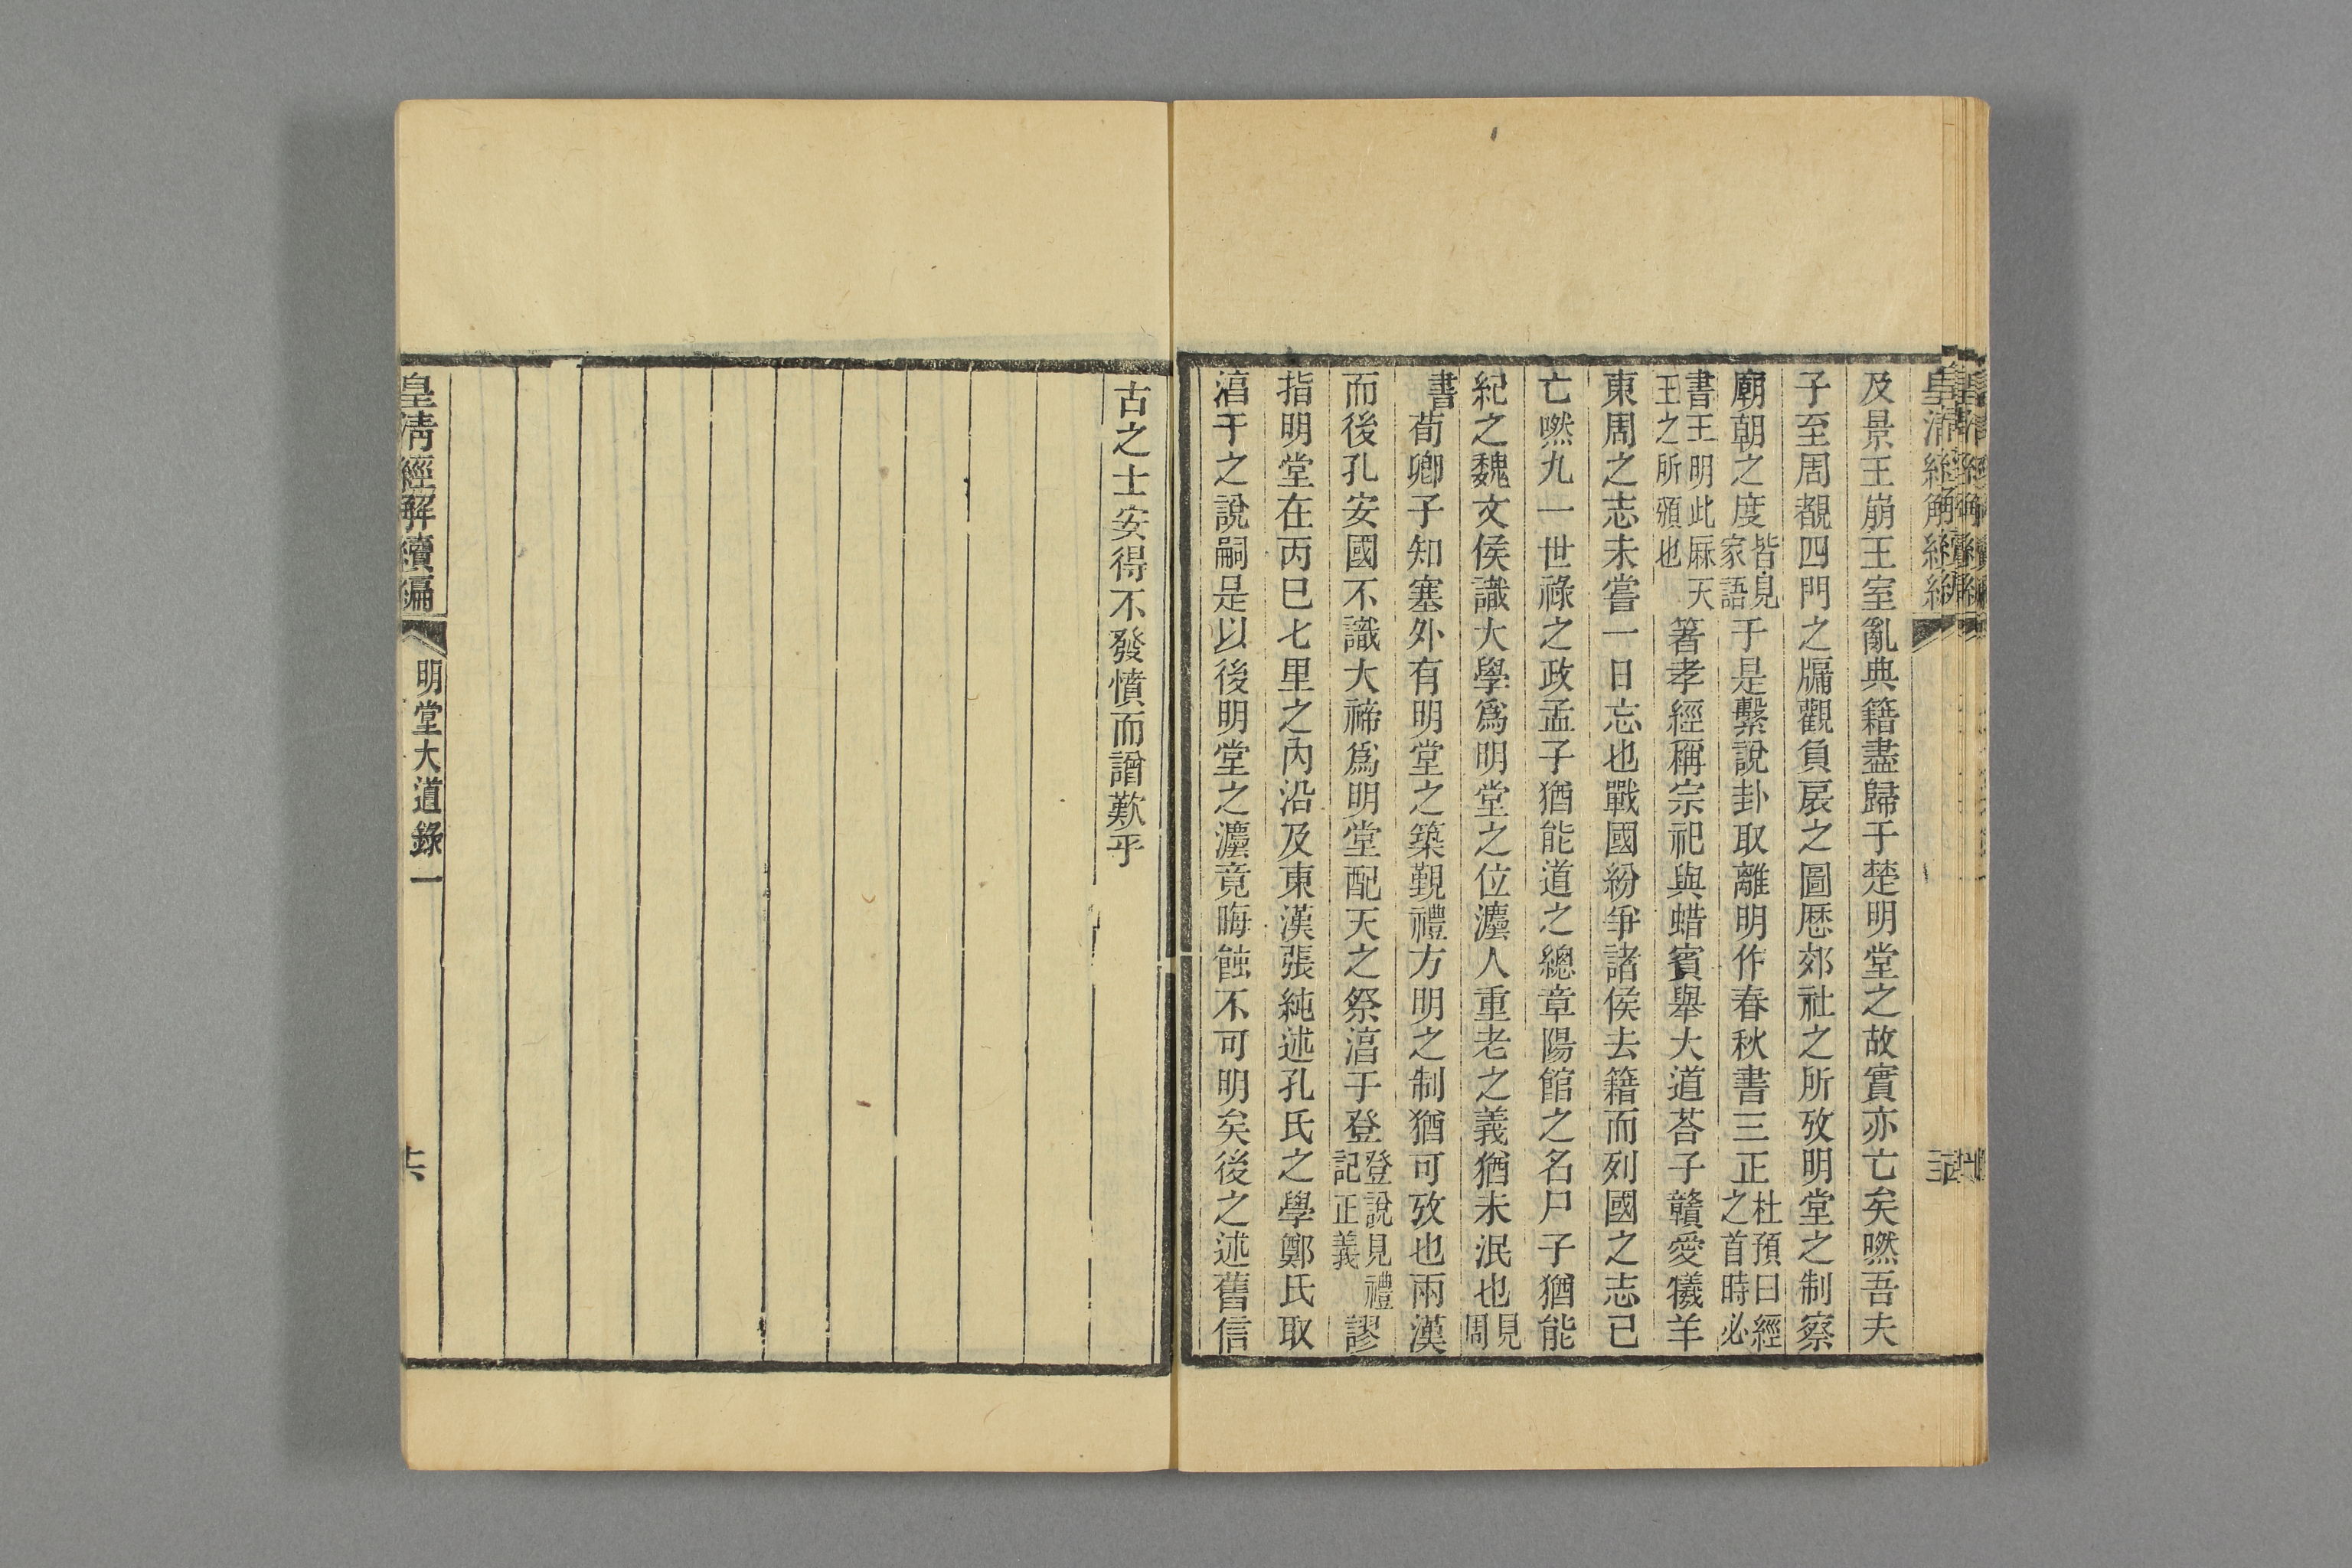 及景王崩王室亂典籍盡歸于楚明堂之故實亦亡矣嘫吾夫
子至周覩四門之牖觀負扆之圖厯郊社之所攷明堂之制察
廟朝之度皆見家語于是繫說卦取離明作春秋書三正杜預曰經之首時必
書王明此厤天王之所頒也箸孝經稱宗祀與蜡賓舉大道荅子贛愛犧羊
東周之志未嘗一日忘也戰國紛爭諸侯去籍而列國之志已
亡嘫九一世祿之政孟子猶能道之總章陽館之名尸子猶能
紀之魏文侯識大學爲明堂之位瀍人重老之義猶未泯也見周
書荀卿子知塞外有明堂之築覲禮方明之制猶可攷也兩漢
而後孔安國不識大禘爲明堂配天之祭湻于登登說見禮記正義謬
指明堂在丙巳七里之內沿及東漢張純述孔氏之學鄭氏取
湻于之說嗣是以後明堂之瀍竟晦蝕不可明矣後之述舊信
古之士安得不發憤而譄歎乎
皇淸經解續編
明堂大道錄一
六